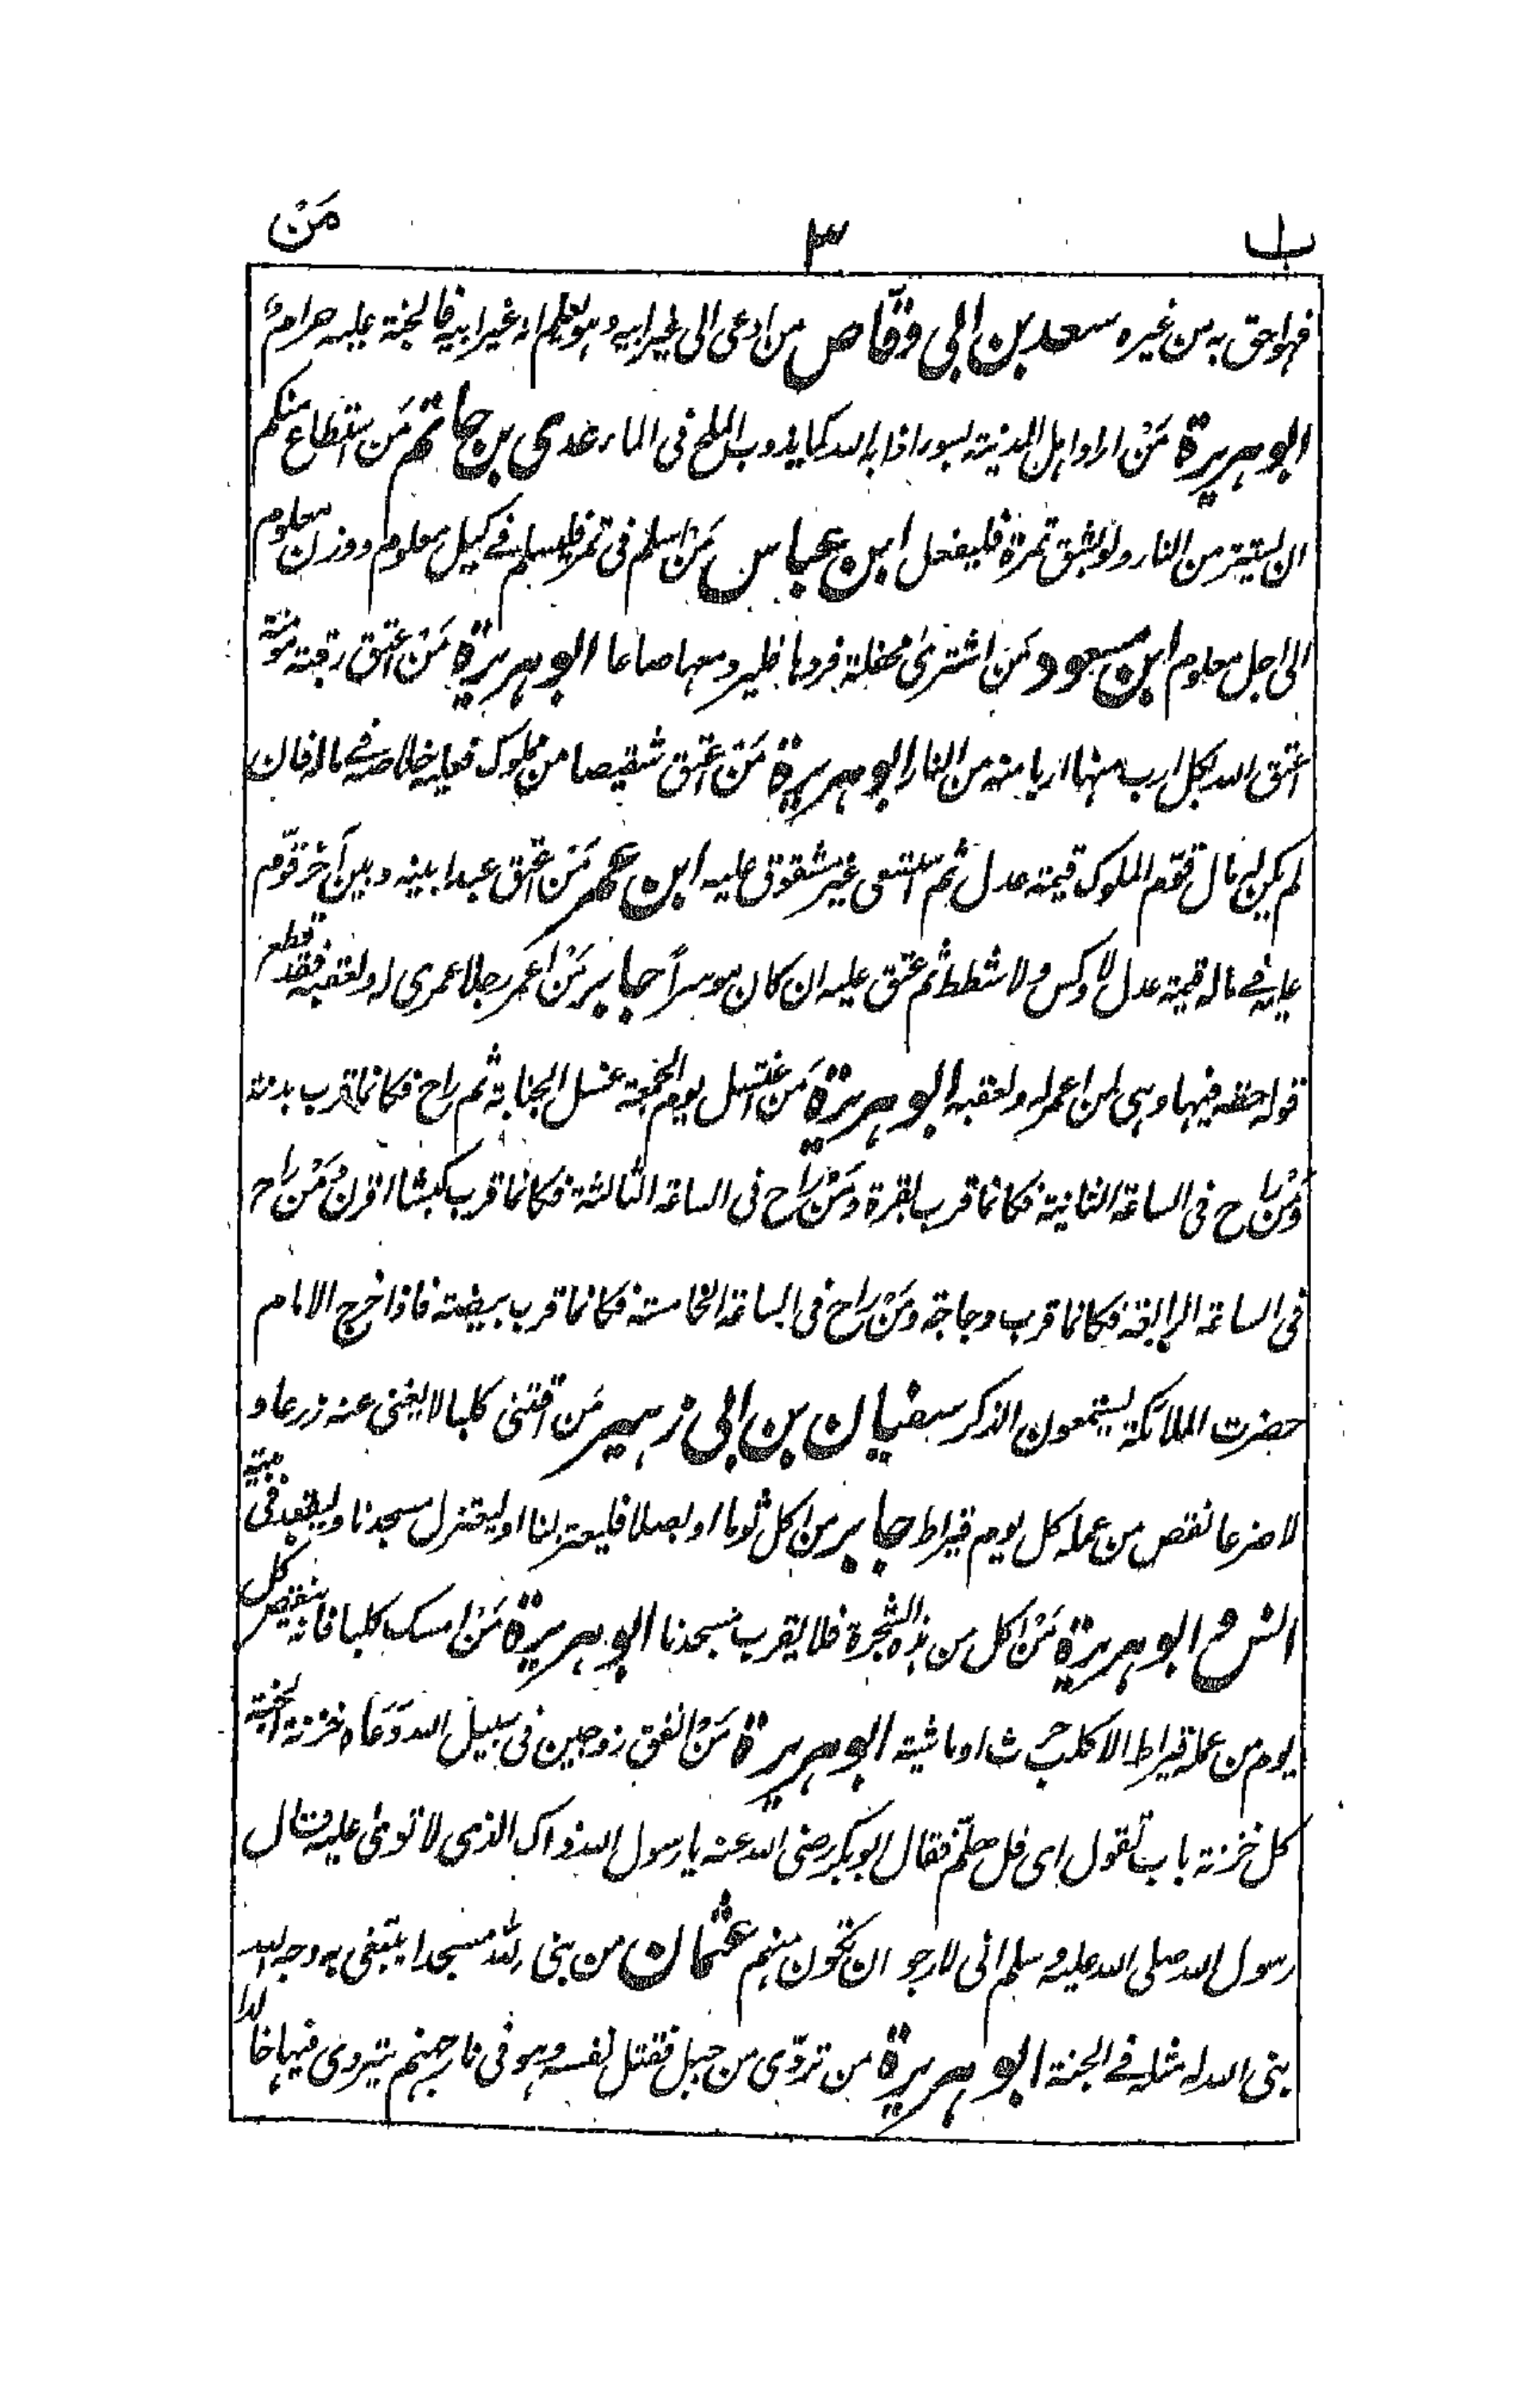 باب ٣ مَنْ
فهو احق به من غيره سعد بن ابى وقّاص من ادعى الى غير ابيه وهو يعلم انه غير ابيه فالجنة عليه حرامٌ
ابو هريرة مَنْ اراد اهل المدينة بسوء اذابه الله كما يذوب الملح فى الماء عدى بن حاتم مَن استطاع منكم
ان يستتر من النار ولو بشق تمرة فليفعل ابن عباس مَنْ اسلم فى تمر فليسلم فى كيل معلوم ووزن معلوم
الى اجل معلوم ابن مسعود مَن اشترىٰ محفلة فردها فليرد معها صاعا ابو هريرة مَنْ اعتق رقبة مؤمنة
اعتق الله بكل ارب منها اربا منه من النار ابو هريرة مَنْ اعتق شقيصا من مملوك فعليه خلاصه فى ماله فان
لم يكن له مال قوّم المملوك قيمة عدل ثم استسعى غير مشقوق عليه ابن عمر مَنْ اعتق عبدا بينه وبين آخر قوّم
عليه فى ماله قيمة عدل لا وكس ولا شطط ثم عتق عليه ان كان موسراً جابر مَنْ اعمر رجلا عمرى له ولعقبه فقد قطع
قوله حقه فيها وهى لمن اعمر له ولعقبه ابو هريرة مَن اغتسل يوم الجمعة غسل الجنابة ثم راح فكانما قرب بدنة
ومَنْ راح فى الساعة الثانية فكانما قرب بقرة ومَنْ راح فى الساعة الثالثة فكانما قرب كبشا اقرن ومَنْ راح
فى الساعة الرابعة فكانما قرب دجاجة ومَنْ راح فى الساعة الخامسة فكانما قرب بيضة فاذا خرج الامام
حضرت الملائكة يستمعون الذكر سفيان بن ابى زهير مَن اقتنى كلبا لا يغنى عنه زرعا و
لا ضرعا نقص من عمله كل يوم قيراط جابر من اكل ثوما او بصلا فليعتزلنا او ليعتزل مسجدنا وليقعد فى بيته
انس و ابو هريرة مَنْ اكل من هذه الشجرة فلا يقرب مسجدنا ابو هريرة مَنْ امسك كلبا فانه ينقص كل
يوم من عمله قيراط الا كلب حرث او ماشية ابو هريرة مَنْ انفق زوجين فى سبيل الله دَعَاه خزنة الجنة
كل خزنة باب تقول اى فل هلمّ فقال ابو بكر رضى الله عنه يا رسول الله ذاك الذى لا توىٰ عليه فقال
رسول الله صلى الله عليه وسلم انى لارجو ان تكون منهم عثمان من بنى لله مسجدا يبتغى به وجه الله
بنى الله له مثله فى الجنة ابو هريرة من تردّى من جبل فقتل نفسه وهو فى نار جهنم يتردى فيها خالدا